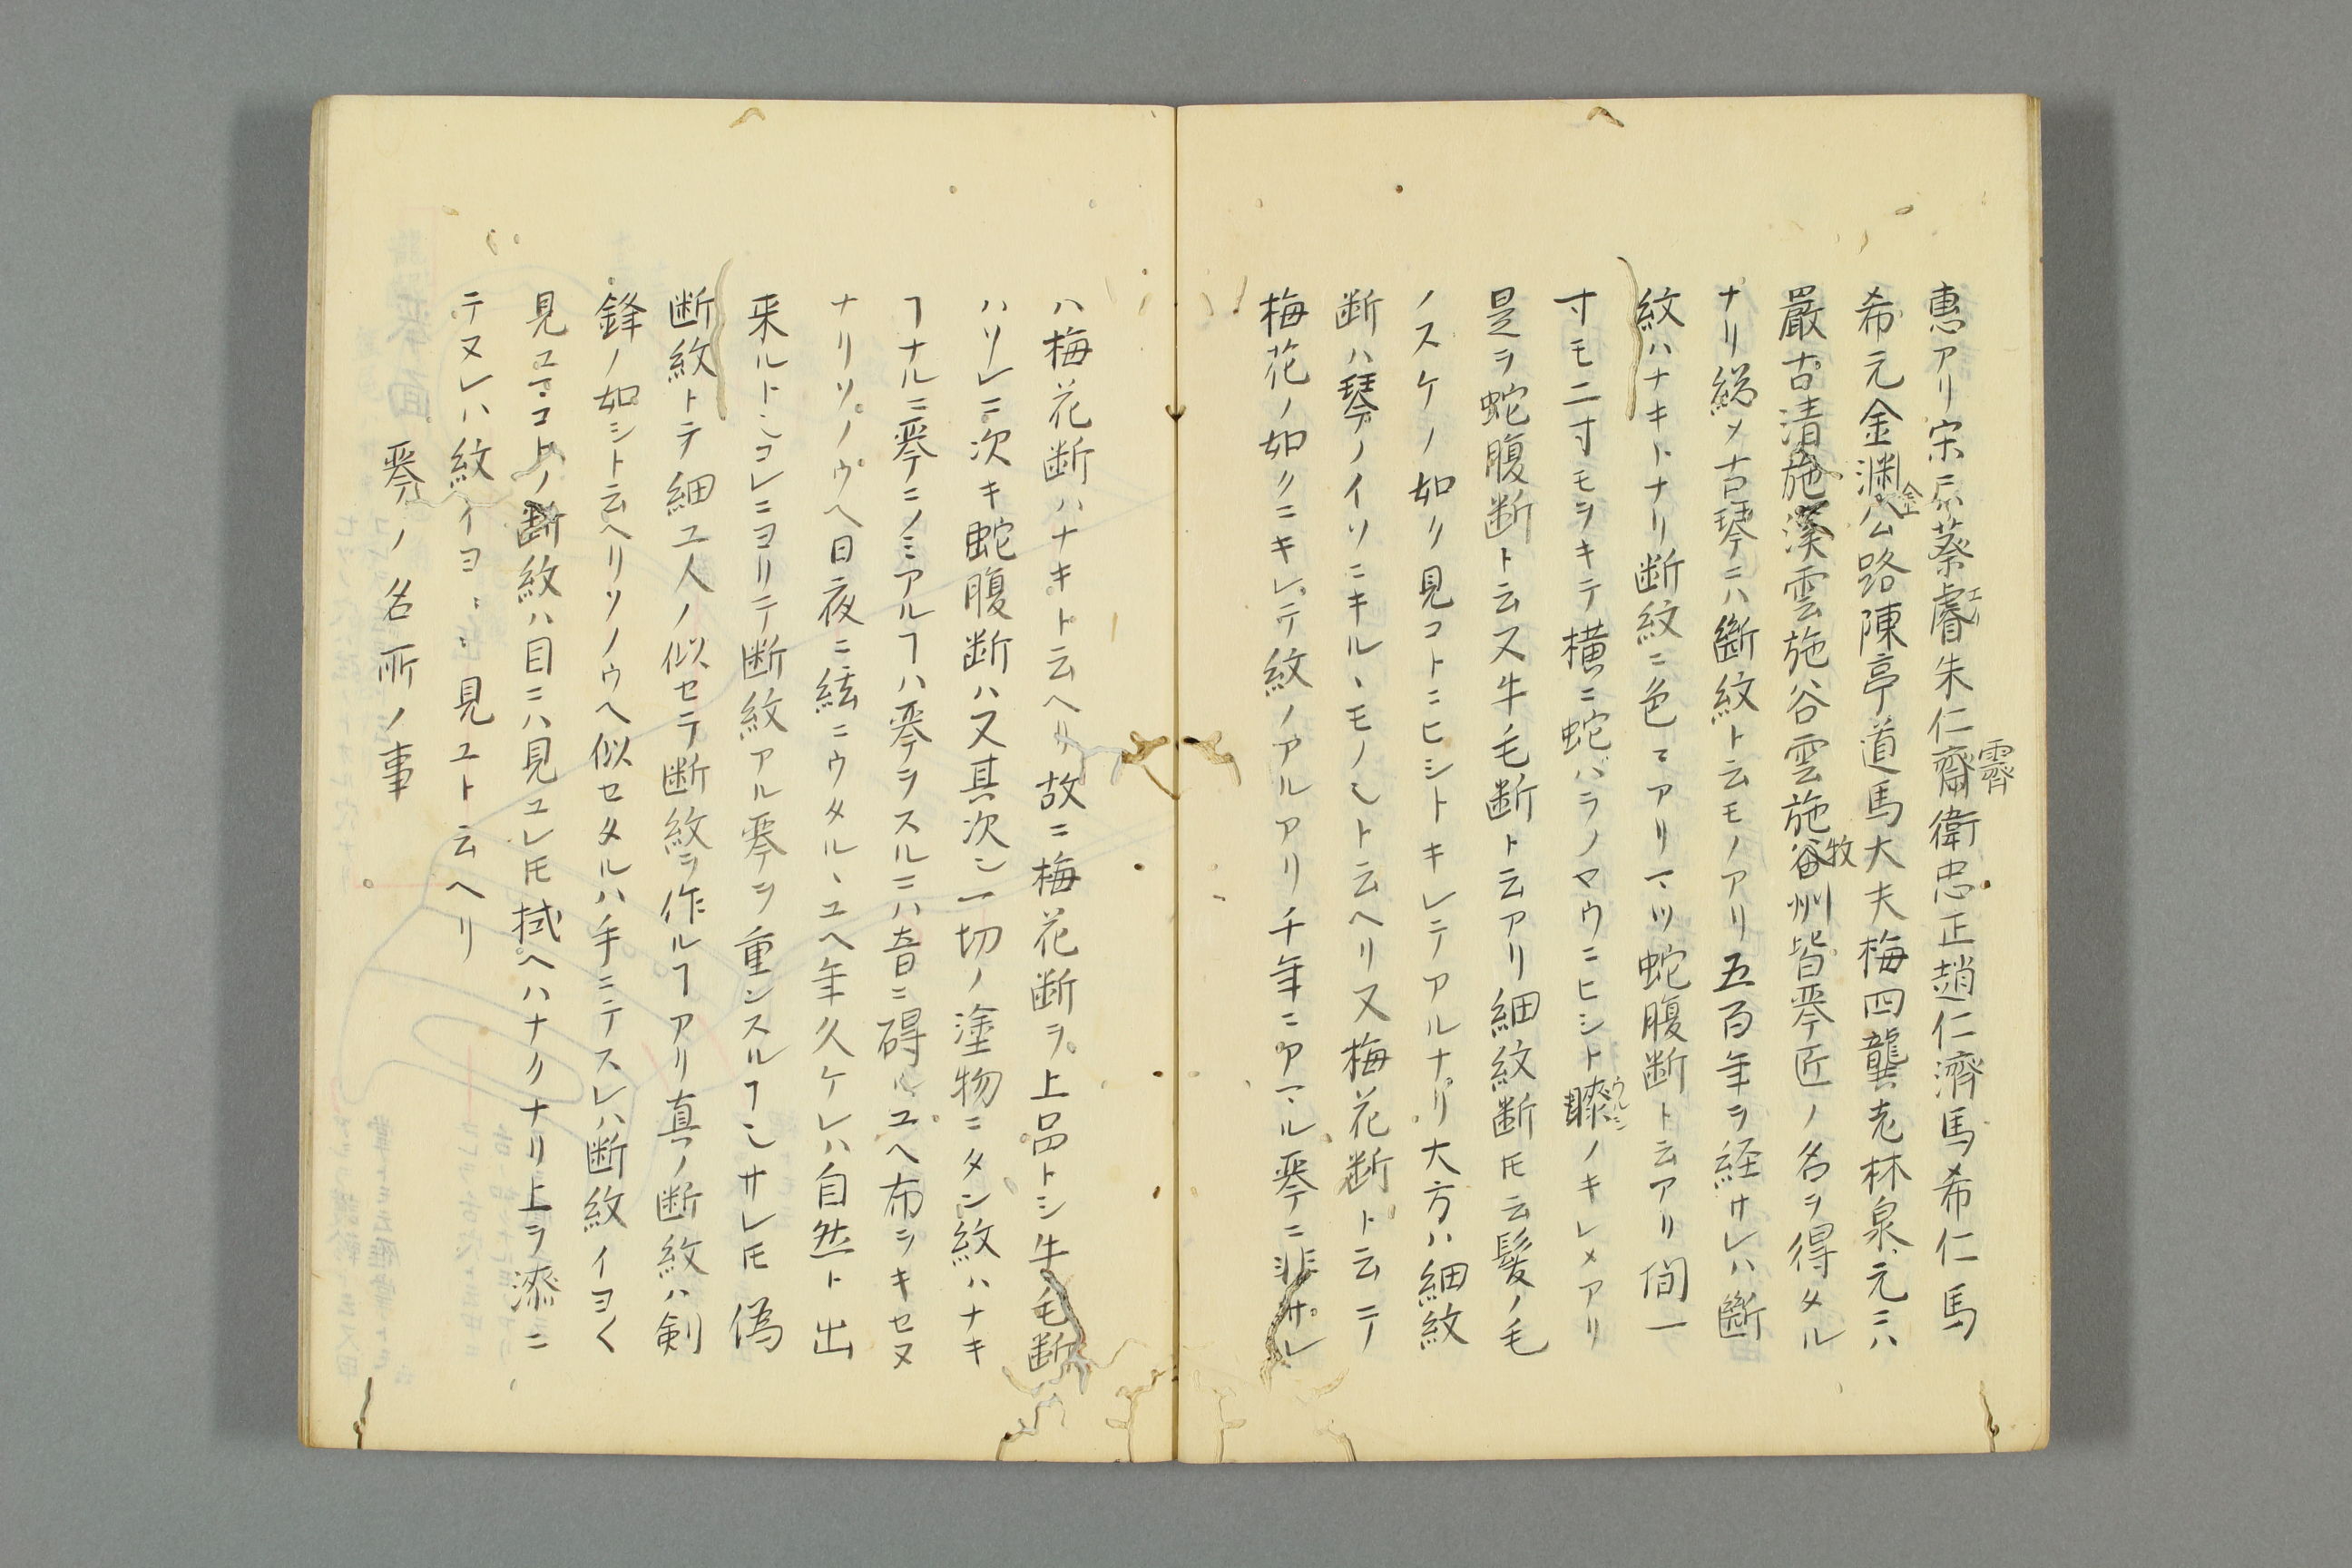 惠アリ宋ニハ蔡睿朱仁齋衛忠正趙仁濟馬希仁馬
希元金渊公路陳亭道馬大夫梅四龔老林泉元ニハ
嚴古清施溪雲施谷雲施谷州皆琴匠ノ名ヲ得タル
ナリ総メ古琴ニハ斷紋ト云モノアリ五百年ヲ経サレハ斷
紋ハナキトナリ断紋ニ色〻アリマツ蛇腹断ト云アリ間一
寸モ二寸モヲキテ横ニ蛇バラノヤウニヒシト髹ノキレメアリ
是ヲ蛇腹断ト云又牛毛断ト云アリ細紋断𪜈云髪ノ毛
ノスケノ如ク見コトニヒシトキレテアルナリ大方ハ細紋
断ハ琴ノイソニキルヽモノ也ト云ヘリ又梅花断ト云テ
梅花ノ如クニキレテ紋ノアルアリ千年ニアマル琴ニ非サレ
ハ梅花断ハナキト云ヘリ故ニ梅花断ヲ上品トシ牛毛断
ハソレニ次キ蛇腹断ハ又其次也一切ノ塗物ニタン紋ハナキ
ヿナルニ琴ニノミアルヿハ琴ヲスルニハ音ニ碍ルユヘ布ヲキセヌ
ナリソノウヘ日夜ニ絃ニウタルヽユヘ年久ケレハ自然ト出
来ルト也コレニヨリテ断紋アル琴ヲ重ンスルヿ也サレ𪜈偽
断紋トテ細工人ノ似セテ断紋ヲ作ルヿアリ真ノ断紋ハ剣
鋒ノ如シト云ヘリソノウヘ似セタルハ手ニテスレハ断紋イヨ〱
見ユマコトノ断紋ハ目ニハ見ユレ𪜈拭ヘハナクナリ上ヲ漆ニ
テヌレハ紋イヨ〻〻見ユト云ヘリ
琴ノ名所ノ事
エイ
霽
金
牧
ウルシ